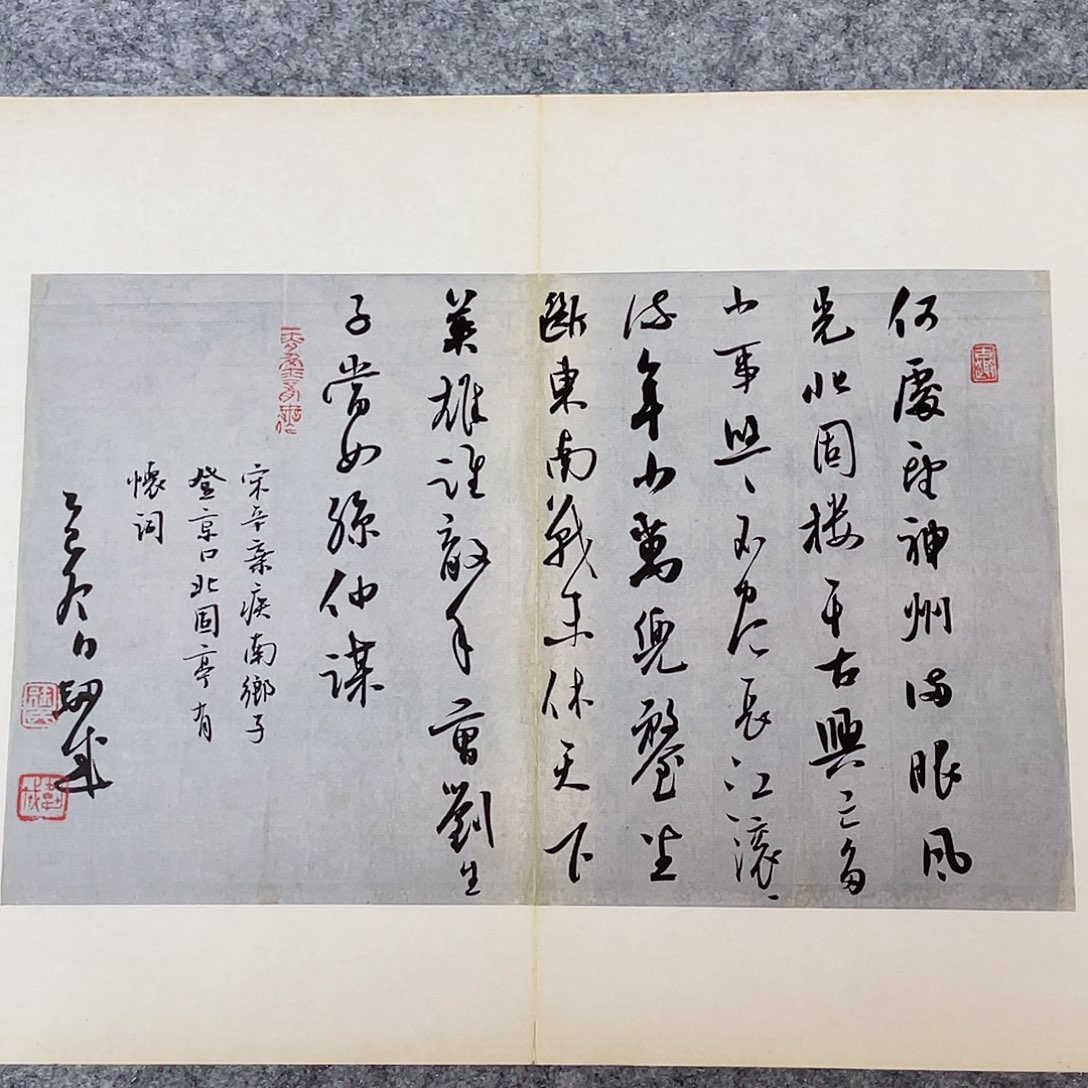 何處望神州滿眼風
光北固楼千古興亡多
少事悠〻不盡長江滚〻
流年少萬兜鍪坐
斷東南戰未休天下
英雄誰敵手曹劉生
子當如孫仲謀
宋辛棄疾南鄉子
登京口北固亭有
懷詞